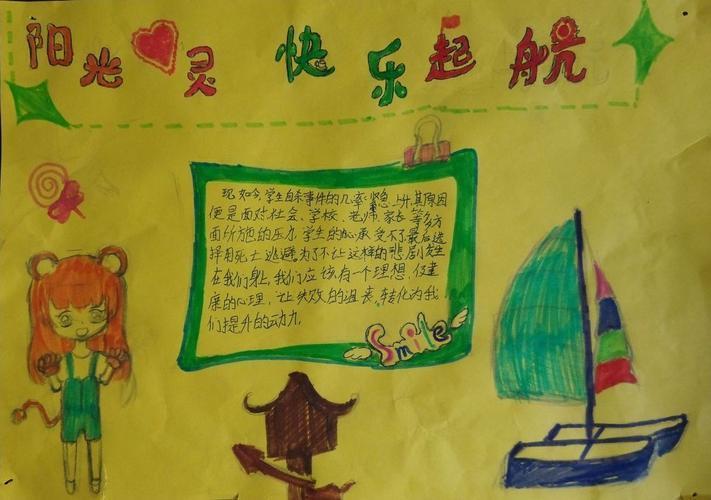 阳光 灵 快乐起航
现如今,学生自杀事件的几率 急 上升,其原因
便是面对社会、学校、老师、家长等多方
面所施的压力,学生的心承受不了最后选
择用死亡逃避,为了不让这样的悲剧发生
在我们身上,我们应该有一个理想,健
康的心理,让失败的 转化为我
们提升的动力。
Smile